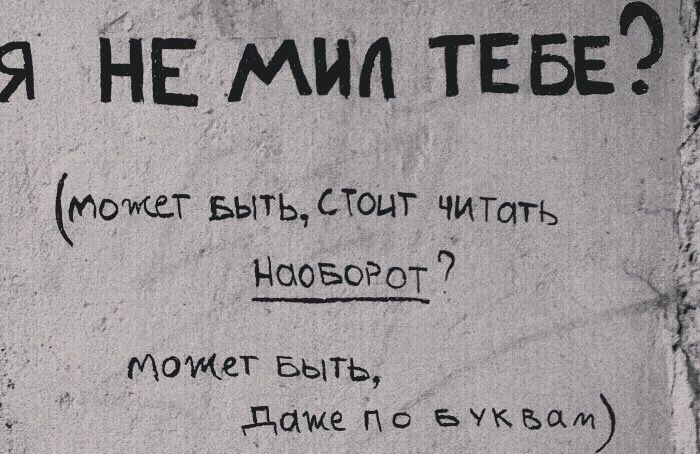 Я НЕ МИЛ ТЕБЕ?
(может быть, стоит читать
наоборот?
может быть,
даже по буквам)